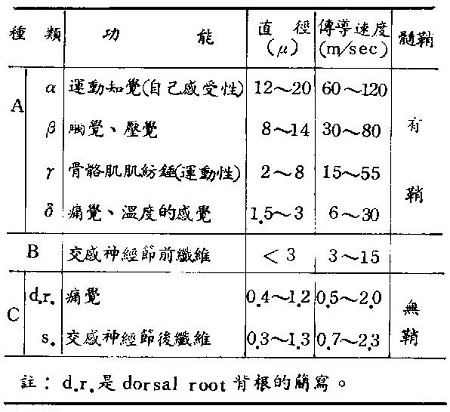 種 類 功 能 直 徑 (μ) 傳導速度 (m/sec) 髓鞘
A α 運動知覺(自己感受性) 12~20 60~120 有鞘
β 觸覺、壓覺 8~14 30~80
γ 骨骼肌肌紡錘(運動性) 2~8 15~55
δ 痛覺、溫度的感覺 1.5~3 6~30
B 交感神經節前纖維 <3 3~15
C d.r. 痛覺 0.4~1.2 0.5~2.0 無鞘
s. 交感神經節後纖維 0.3~1.3 0.7~2.3
註：d.r.是dorsal root背根的簡寫。